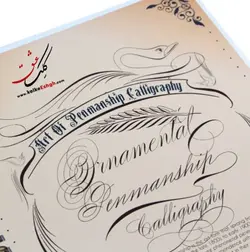 کلک عشق
www.kelkeEshgh.com
Art Of Penmanship Calligraphy
Ornamental
Penmanship
Calligraphy